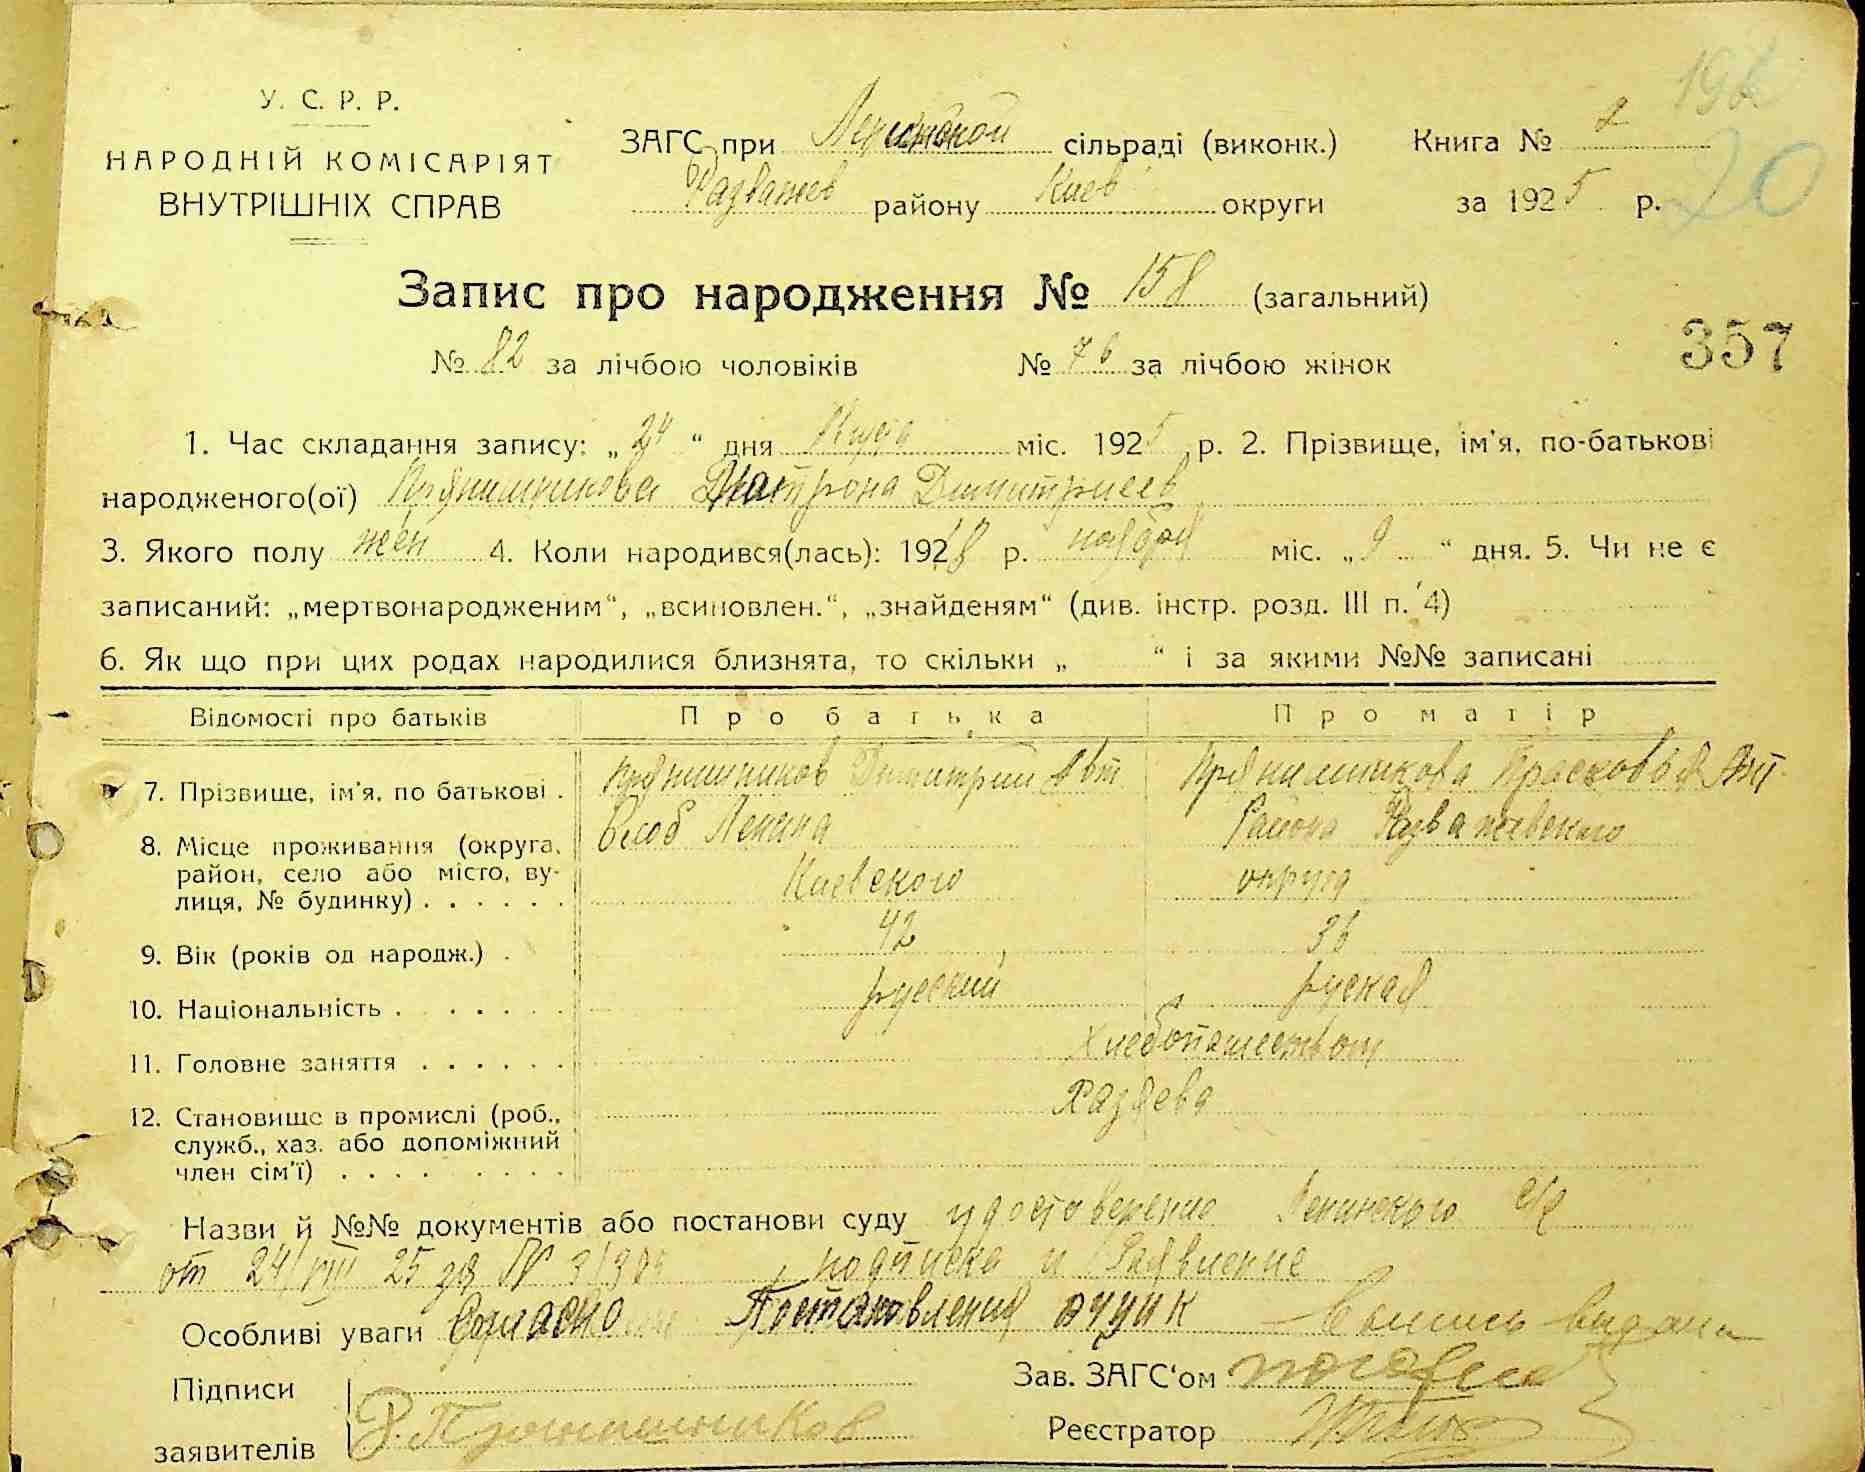 У. С. Р. Р.
НАРОДНІЙ КОМІСАРІЯТ
ВНУТРІШНІХ СПРАВ
ЗАГС при сільраді (виконк.) Книга № 2
Разважев району Киев округи за 1925 р.
20
Запис про народження № 158 (загальний)
№ 82 за лічбою чоловіків № 76 за лічбою жінок
357
1. Час складання запису: „24“ дня міс. 1925 р. 2. Прізвище, ім'я, по-батькові
народженого(ої) Прянишникова Матрона Димитриев
3. Якого полу жен 4. Коли народився(лась): 1918 р. ноября міс. „9“ дня. 5. Чи не є
записаний: „мертвонародженим“, „всиновлен.“, „знайденям“ (див. інстр. розд. III п. 4)
6. Як що при цих родах народилися близнята, то скільки „ “ і за якими №№ записані
Відомості про батьків Про батька Про матір
7. Прізвище, ім'я, по батькові . Прянишников Димитрий Авт Прянишникова Прасковья
8. Місце проживання (округа, Слоб Ленина Района Разважевского
район, село або місто, ву-
лиця, № будинку) . . . . . . Киевского округа
9. Вік (років од народж.) . 42 36
10. Національність . . . . . . русский руская
11. Головне заняття . . . . . . Хлебопашеством
12. Становище в промислі (роб., Хазяева
служб., хаз. або допоміжний
член сім'ї) . . . . . . . .
Назви й №№ документів або постанови суду удостоверение Ленинского с/с
от 24/VIII 25 за № подписка и Заявление
Особливі уваги Согласно Постановления вуцик Выпись выдана
Підписи
заявителів Прянишников
Зав. ЗАГС'ом
Реєстратор